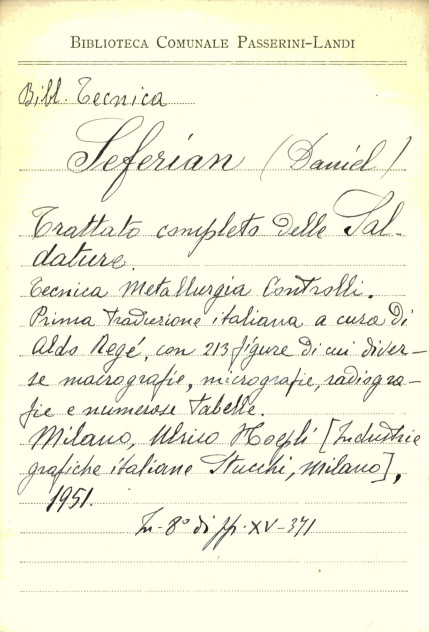 BIBLIOTECA COMUNALE PASSERINI-LANDI
Bibl. Tecnica
Seferian (Daniel)
Trattato completo delle Sal-
dature.
Tecnica Metallurgia Controlli.
Prima traduzione italiana a cura di
Aldo Regé, con 213 figure di cui diver-
se macrografie, micrografie, radiogra-
fie e numerose tabelle.
Milano, Ulrico Hoepli [Industrie
grafiche italiane Stucchi, Milano],
1951.
In-8° di pp. XV-371